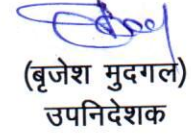 (बृजेश मुदगल)
उपनिदेशक